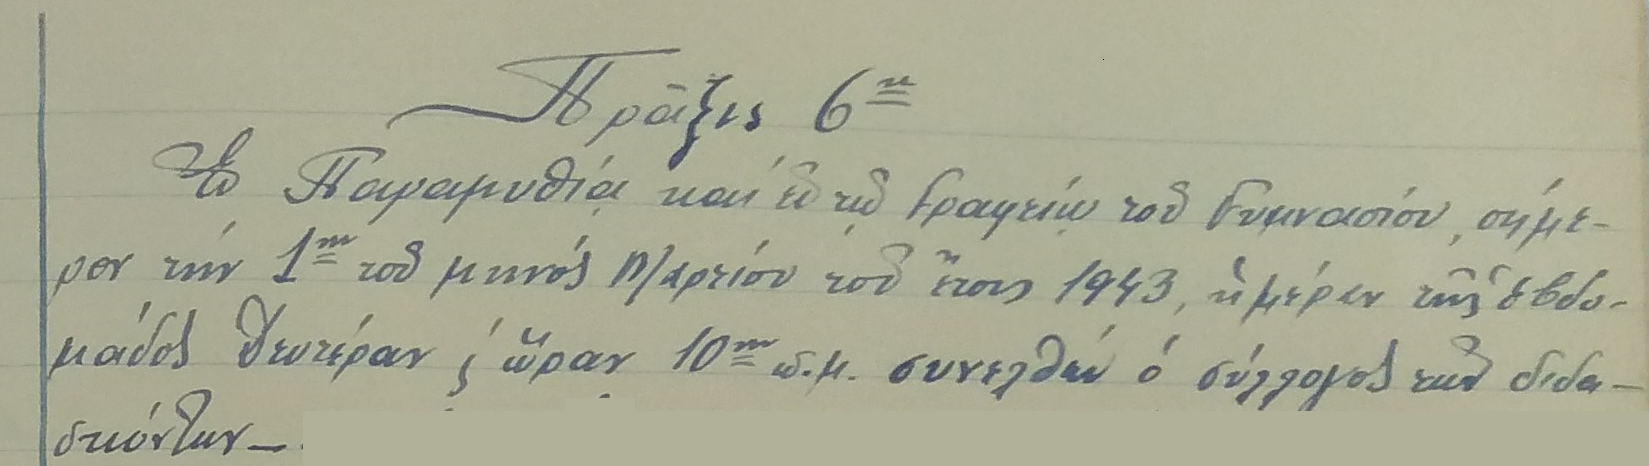 Πρᾶξις 6η
Ἐν Παραμυθίᾳ καί ἐν τῷ Γραφείῳ τοῦ Γυμνασίου, σήμε-
ρον τήν 1ην τοῦ μηνός Μαρτίου τοῦ ἔτους 1943, ἡμέραν τῆς ἑβδο-
μάδος Δευτέραν ϛ́ ὥραν 10ην π.μ. συνελθών ὁ σύλλογος τῶν διδα-
σκόντων -